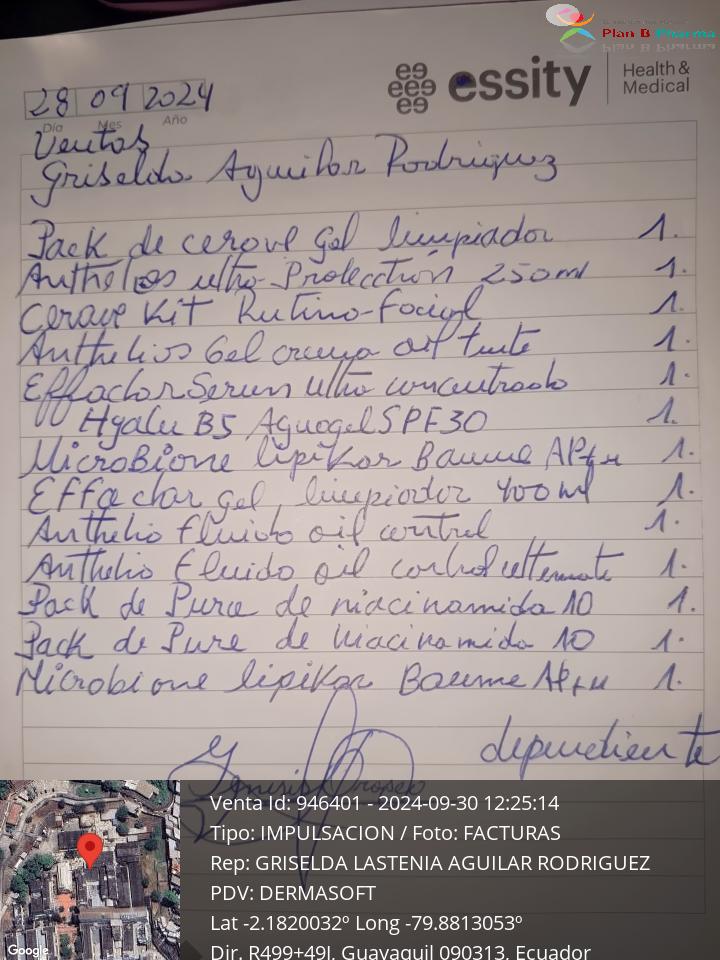 Plan B Pharma
essity
Health &
Medical
28 09 2024
Día Mes Año
Ventas
Griselda Aguilar Rodriguez
Pack de cerave Gel limpiador 1.
Anthelios ultra-Protección 250ml 1.
Cerave Kit Rutina-Facial 1.
Anthelios Gel crema oil tinte 1.
Effaclar Serum ultra concentrado 1.
Hyalu B5 Aquagel SPF30 1.
MicroBione lipikar Baume AP+M 1.
Effaclar gel limpiador 400ml 1.
Anthelio fluido oil control 1.
Anthelio fluido oil control 1.
Pack de Pure de niacinamida 10 1.
Pack de Pure de Niacinamida 10 1.
Microbione lipikar Baume AP+M 1.
dependiente
Venta Id: 946401 - 2024-09-30 12:25:14
Tipo: IMPULSACION / Foto: FACTURAS
Rep: GRISELDA LASTENIA AGUILAR RODRIGUEZ
PDV: DERMASOFT
Lat -2.1820032º Long -79.8813053º
Dir. R499+49J, Guayaquil 090313, Ecuador
Google